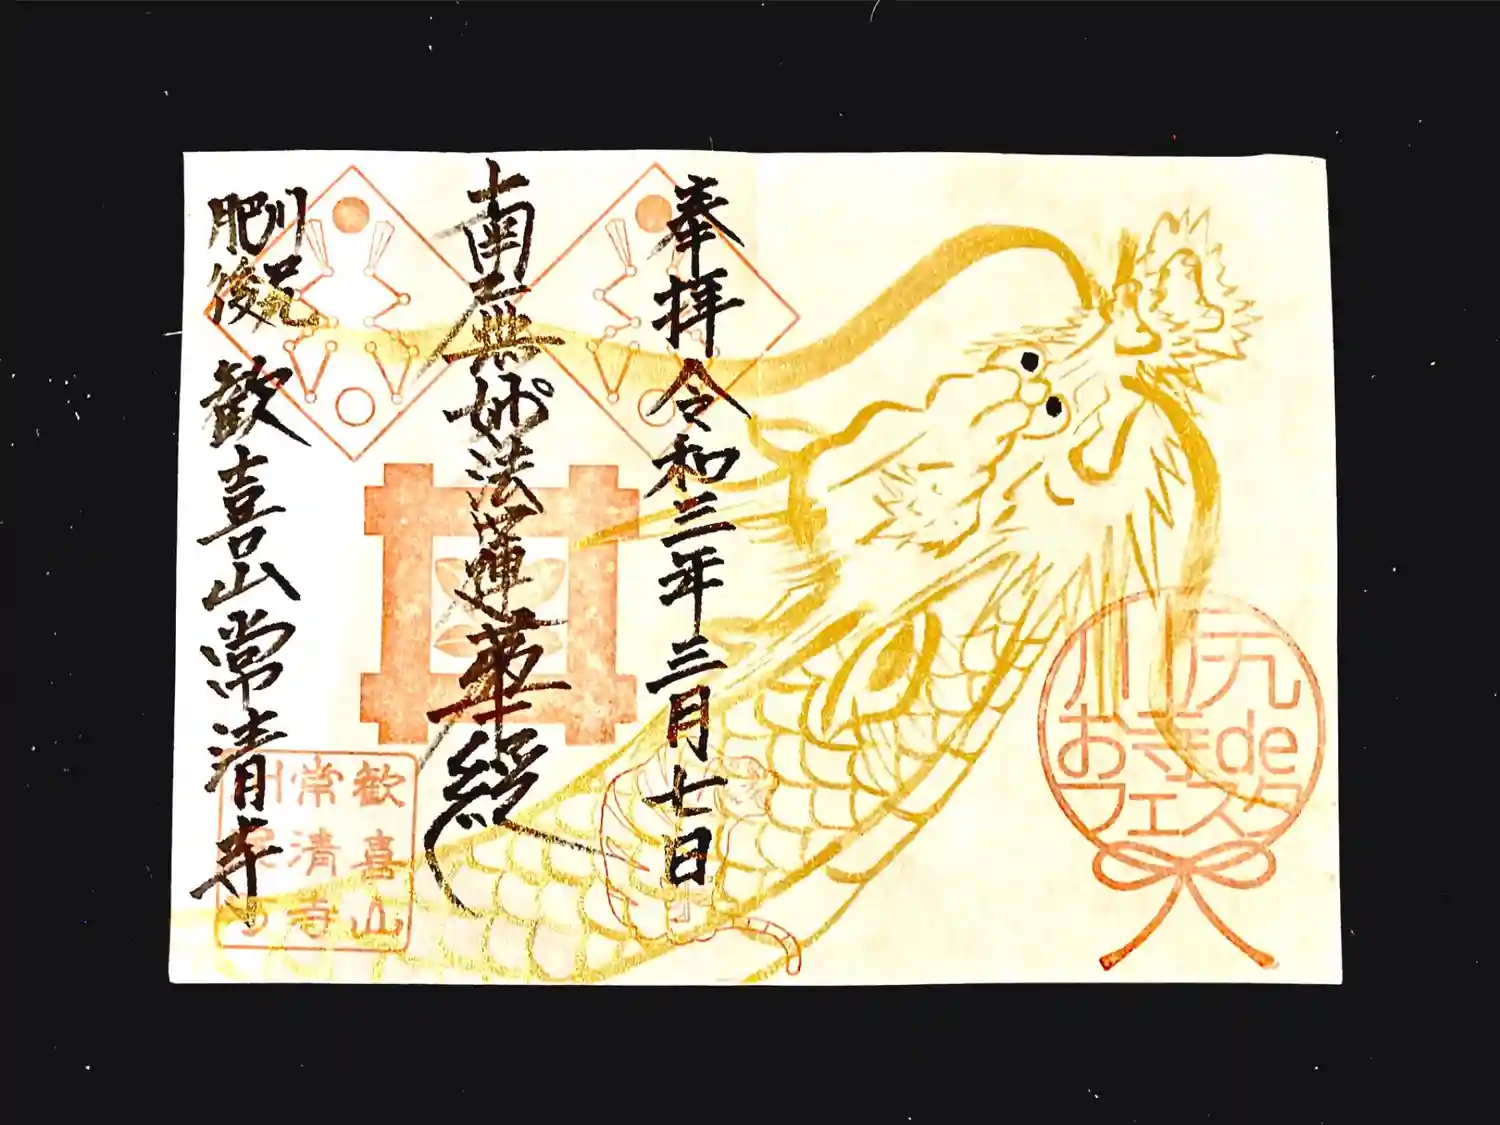 奉拝 令和三年三月七日
南無妙法蓮華経
肥後
川尻
歓喜山常清寺
歓喜山
常清寺
川尻
お寺de
フェスタ